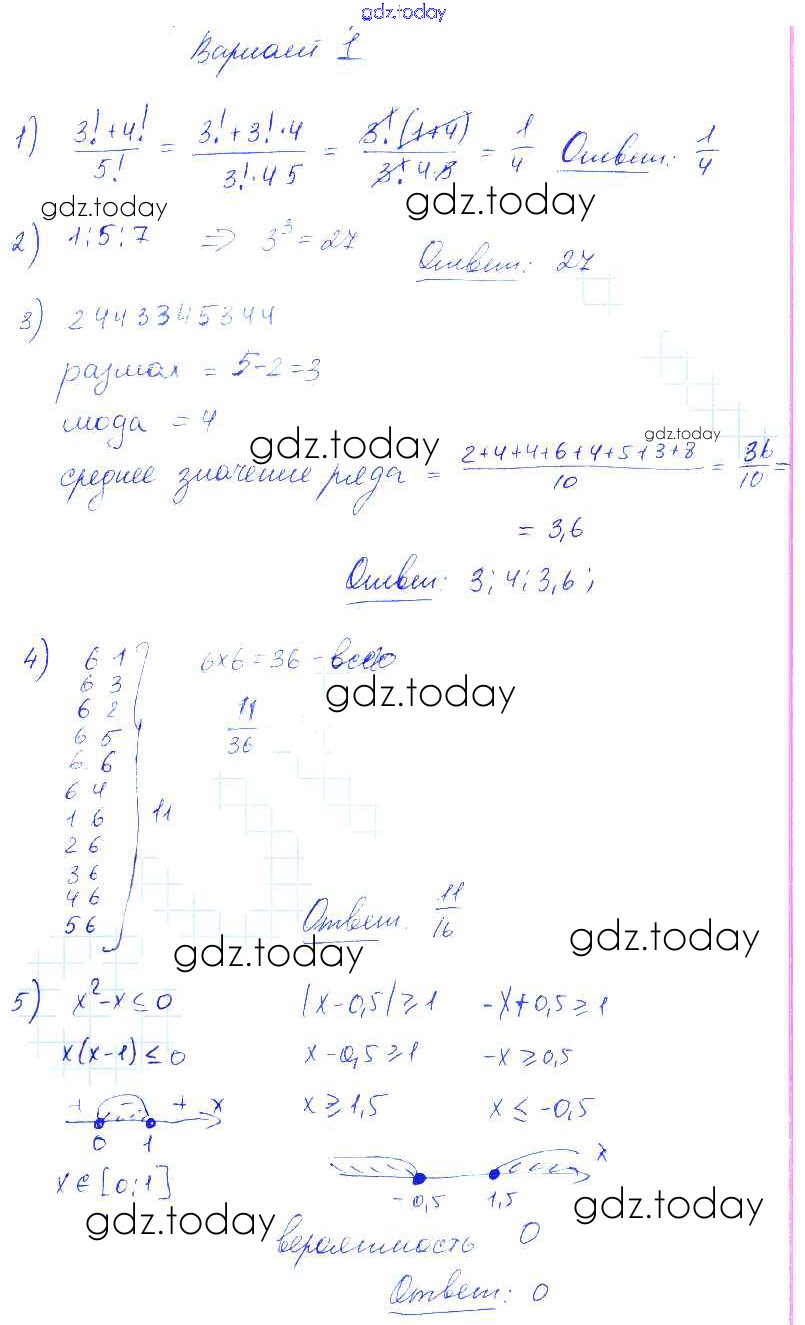 gdz.today
Вариант 1
1) (3!+4!)/5! = (3!+3!·4)/(3!·4 5) = (3!(1+4))/(3!·4·5) = 1/4 Ответ: 1/4
gdz.today gdz.today
2) 1;5;7 ⇒ 3³=27 Ответ: 27
3) 2 4 4 3 3 4 5 3 4 4
размах = 5-2=3
мода = 4
gdz.today gdz.today
среднее значение ряда = (2+4+4+6+4+5+3+8)/10 = 36/10 =
= 3,6
Ответ: 3; 4; 3,6;
4) 6 1 6×6=36 - всего
6 3
gdz.today
6 2 11/36
6 5
6 6
6 4
1 6 11
2 6
3 6
4 6
5 6 Ответ. 11/16
gdz.today gdz.today
5) x²-x≤0 |x-0,5|⩾1 -x+0,5≥1
x(x-1)≤0 x-0,5≥1 -x⩾0,5
x⩾1,5 x≤-0,5
+ - + x
0 1
x
-0,5 1,5
x∈[0;1]
gdz.today gdz.today
вероятность 0
Ответ: 0